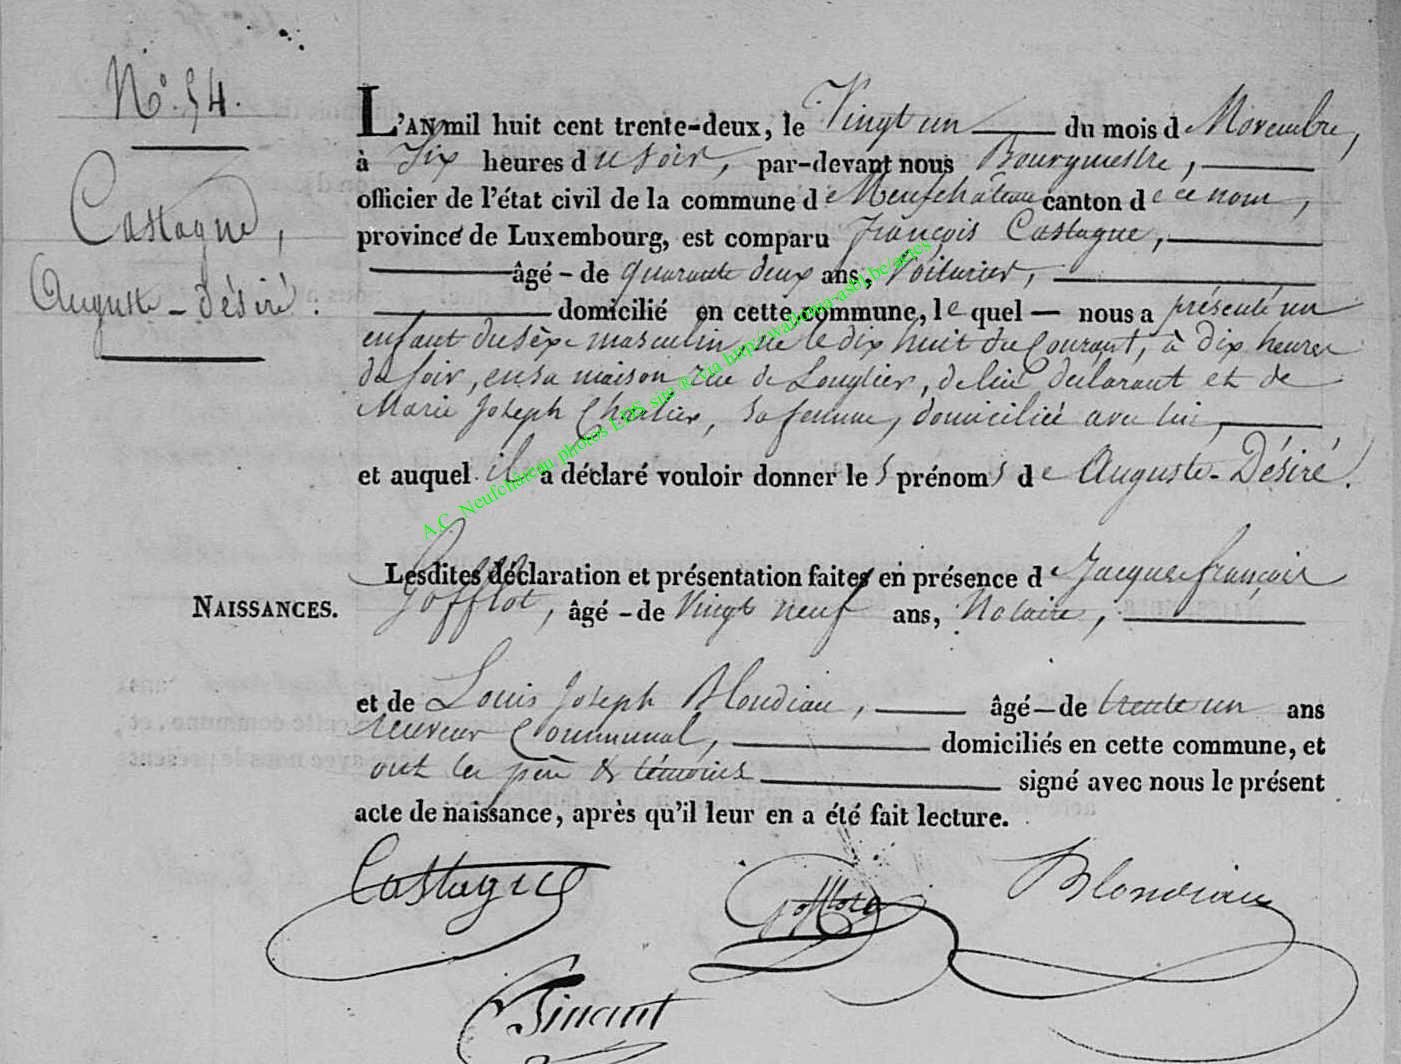 N° 54.
Castagne,
Auguste - Désiré.
L'AN mil huit cent trente-deux, le Vingt un du mois de Novembre,
à Six heures du soir, par-devant nous Bourgmestre,
officier de l'état civil de la commune de Neufchateau canton de ce nom,
province de Luxembourg, est comparu François Castagne,
âgé - de quarante deux ans, Voiturier,
domicilié en cette commune, le quel — nous a présenté un
enfant du sèxe masculin, né le dix huit du Courant, à dix heures
du soir, en sa maison rue de Longlier, de lui déclarant et de
Marie Joseph Charlier, sa femme, domiciliée avec lui,
et auquel il a déclaré vouloir donner les prénoms de Auguste-Désiré.
Lesdites déclaration et présentation faites en présence de Jacques françois
Gofflot, âgé - de Vingt neuf ans, Notaire,
NAISSANCES.
et de Louis Joseph Blondiau, âgé — de trente un ans
receveur Communal, domiciliés en cette commune, et
ont les père & témoins signé avec nous le présent
acte de naissance, après qu'il leur en a été fait lecture.
Castagne Gofflot Blondiau
Tinant
A.C. Neufchâteau photos LDS sur © via http://wallonia-asbl.be/actes